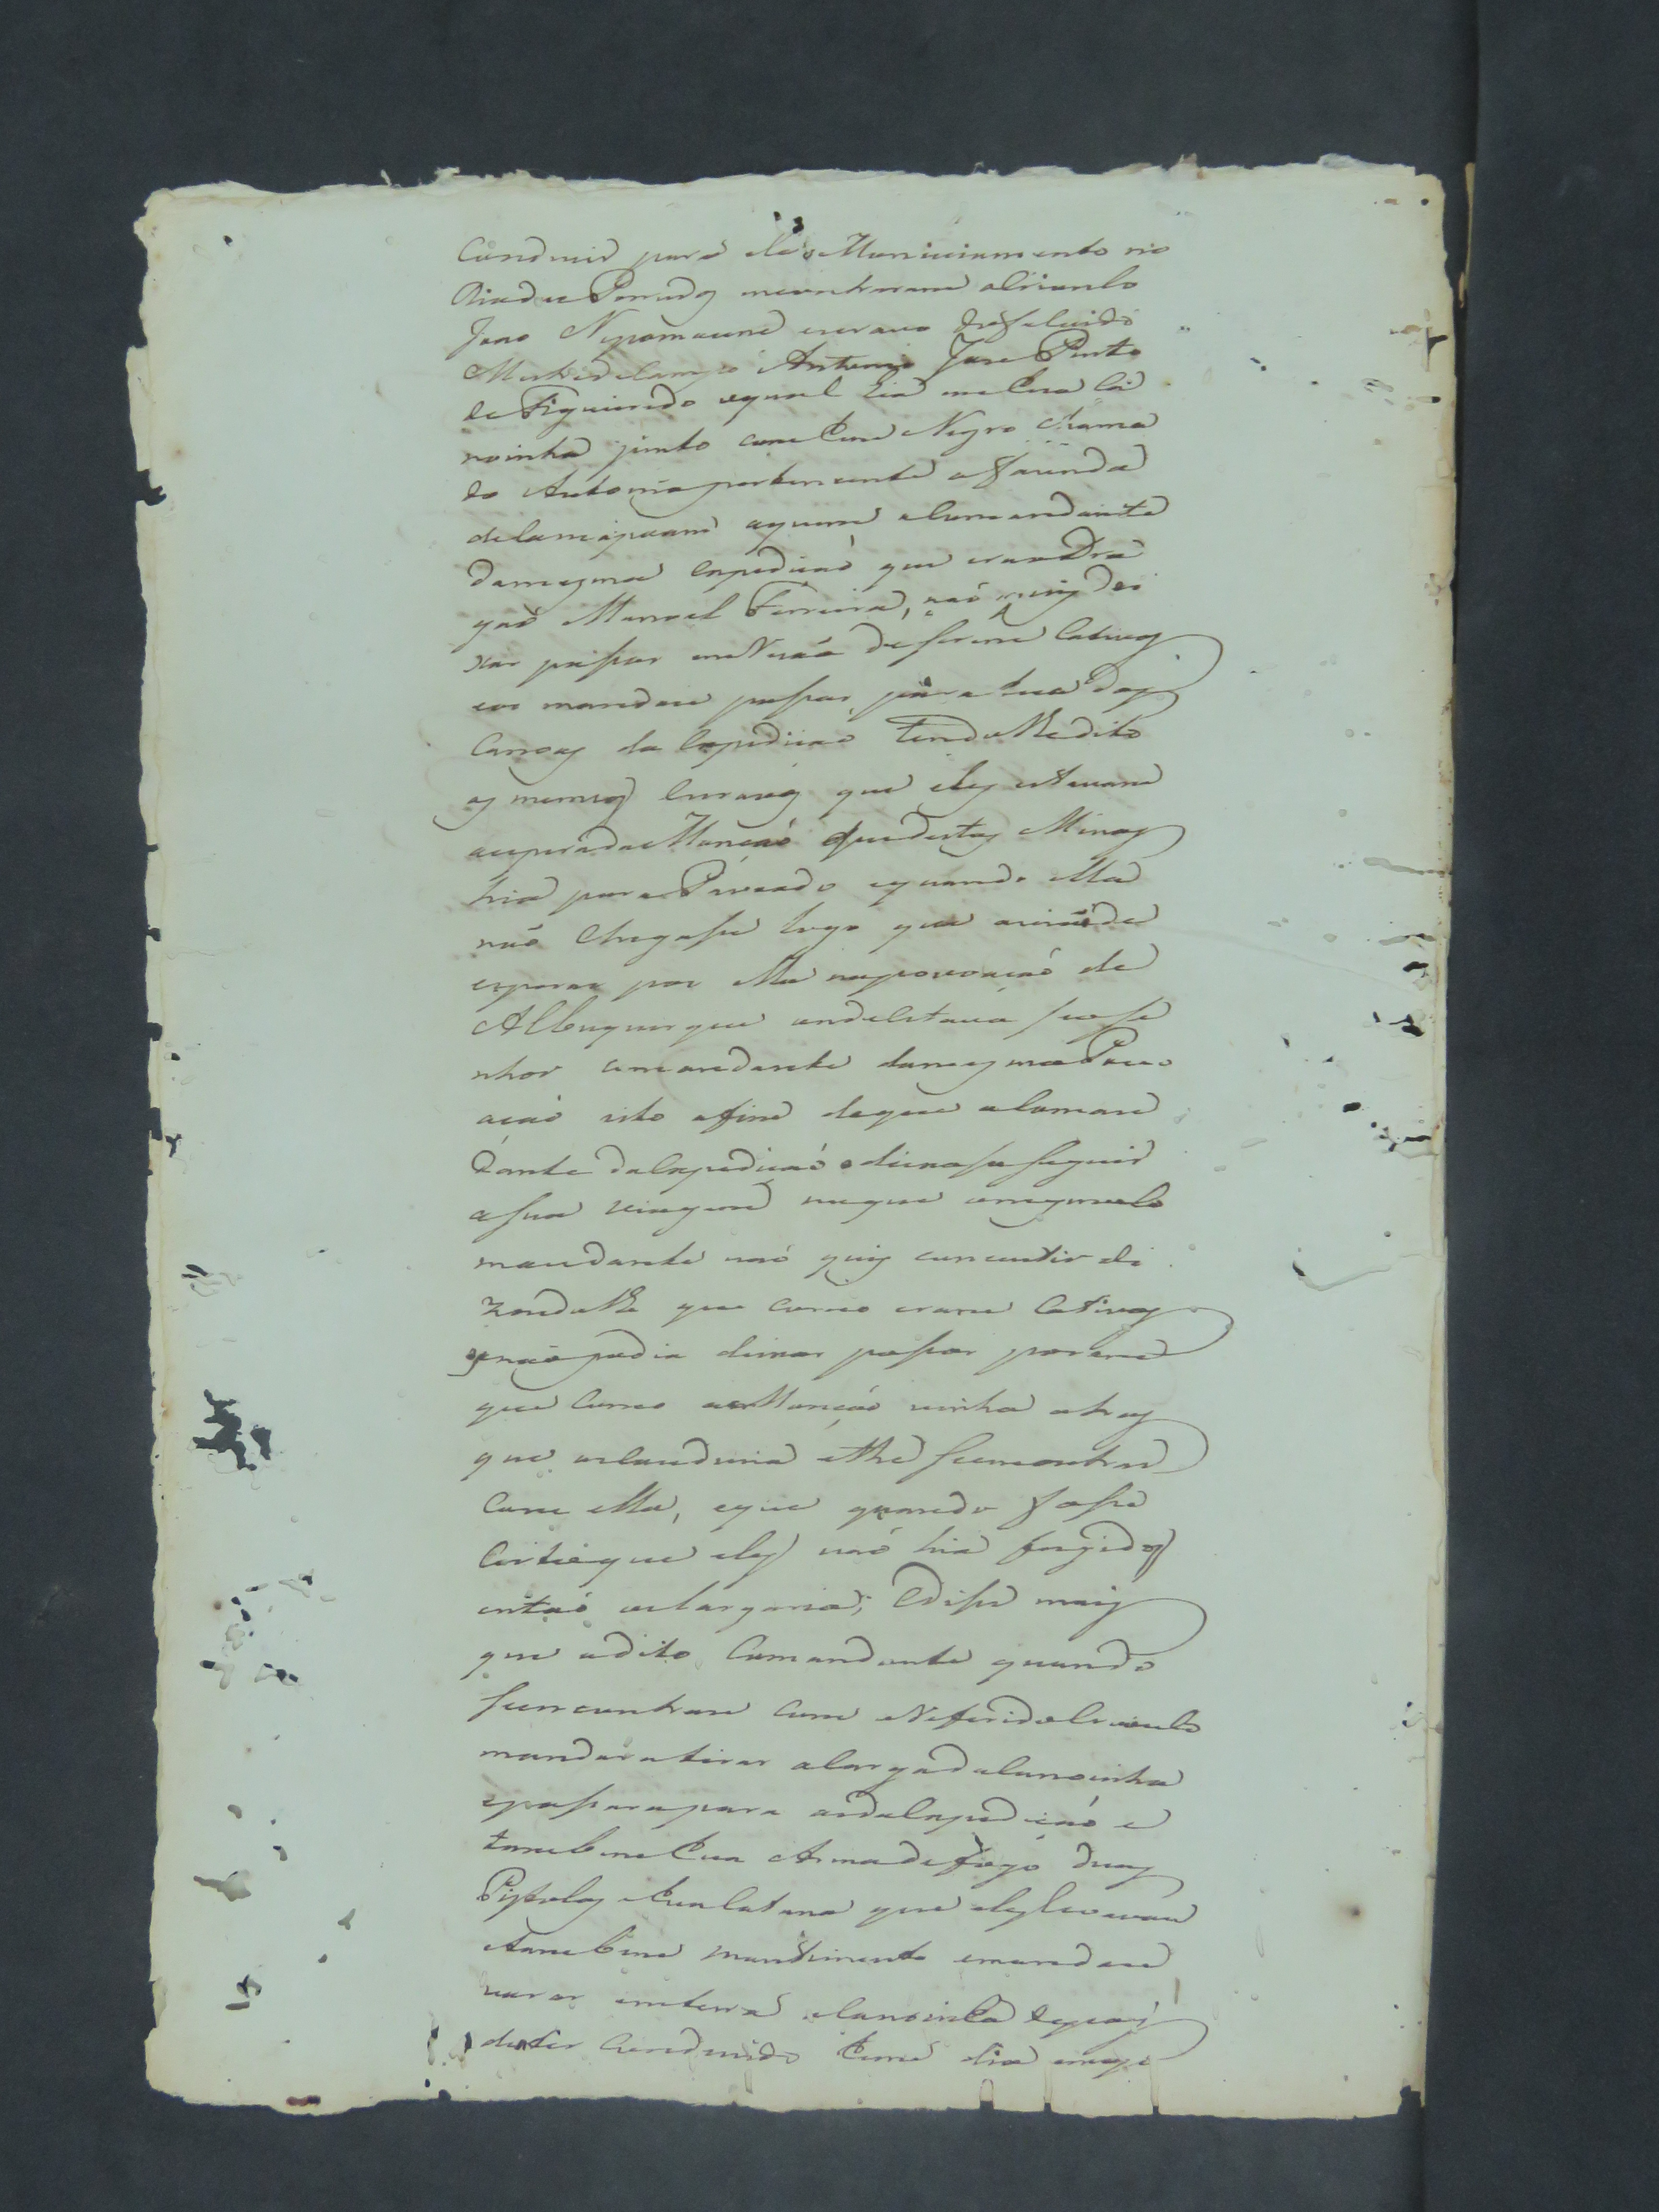 Conduzir para ele o Municiamento no
Rio dos Porrudos encontraram o Crioulo
Joao Nepomuceno escravo do falecido
Mestre de Campo Antonio Jose Pinto
de Figueiredo o qual hia em huma Ca
noinha junto com hum Negro chama
do Antonio pertencente a fazenda
de Camapuam a quem o Comandante
da mesma Expedicaó que era o Dra
gaó Manoel Ferreira, naó quiz dei
xar passar em Rezaó de serem Cativos
e os mandou passar para huã das
Canoas da Expedicaó tendo lhe dito
os mesmos Escravos que eles estavam
a espera da Monçaó que destas Minas
hia para Povoado e quando ella
naó chegasse logo que aviaó de
esperar por ella na povoacaó de
Albuquerque onde estava seo se
nhor comandante da mesma Povo
acaó isto a fim de que o Coman
dante da Expedicaó o deixasse seguir
a sua viagem no que o mesmo Co
mandante naó quis consentir di
zendo lhe que como eram Cativos
os naó podia deixar passar porem
que como a Monçaó vinha atras
que os Conduzia athe se encontrar
com ella, e que quando fosse
Certo que eles naó hiã fugidos
entaó os largaria; E disse mais
que o dito Comandante quando
se encontrou com o Referido Crioulo
mandara tirar a Carga da Canoinha
e passara para as da Expedicaó e
tambem huã Arma de fogo duas
Pistolas e huã Catana que eles levavaõ
e tambem mantimento e mandou
varar em terra a Canoinha depois
de ter Conduzido hum dia e meyo